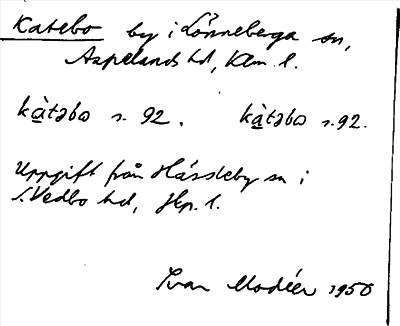 Katebo by i Lönneberga sn,
Aspelands hd, Klm. l.
kàtəbo s. 92. kàtəbo s. 92.
Uppgift från Hässleby sn i
S. Vedbo hd, Jkp. l.
Ivar Modéer 1950